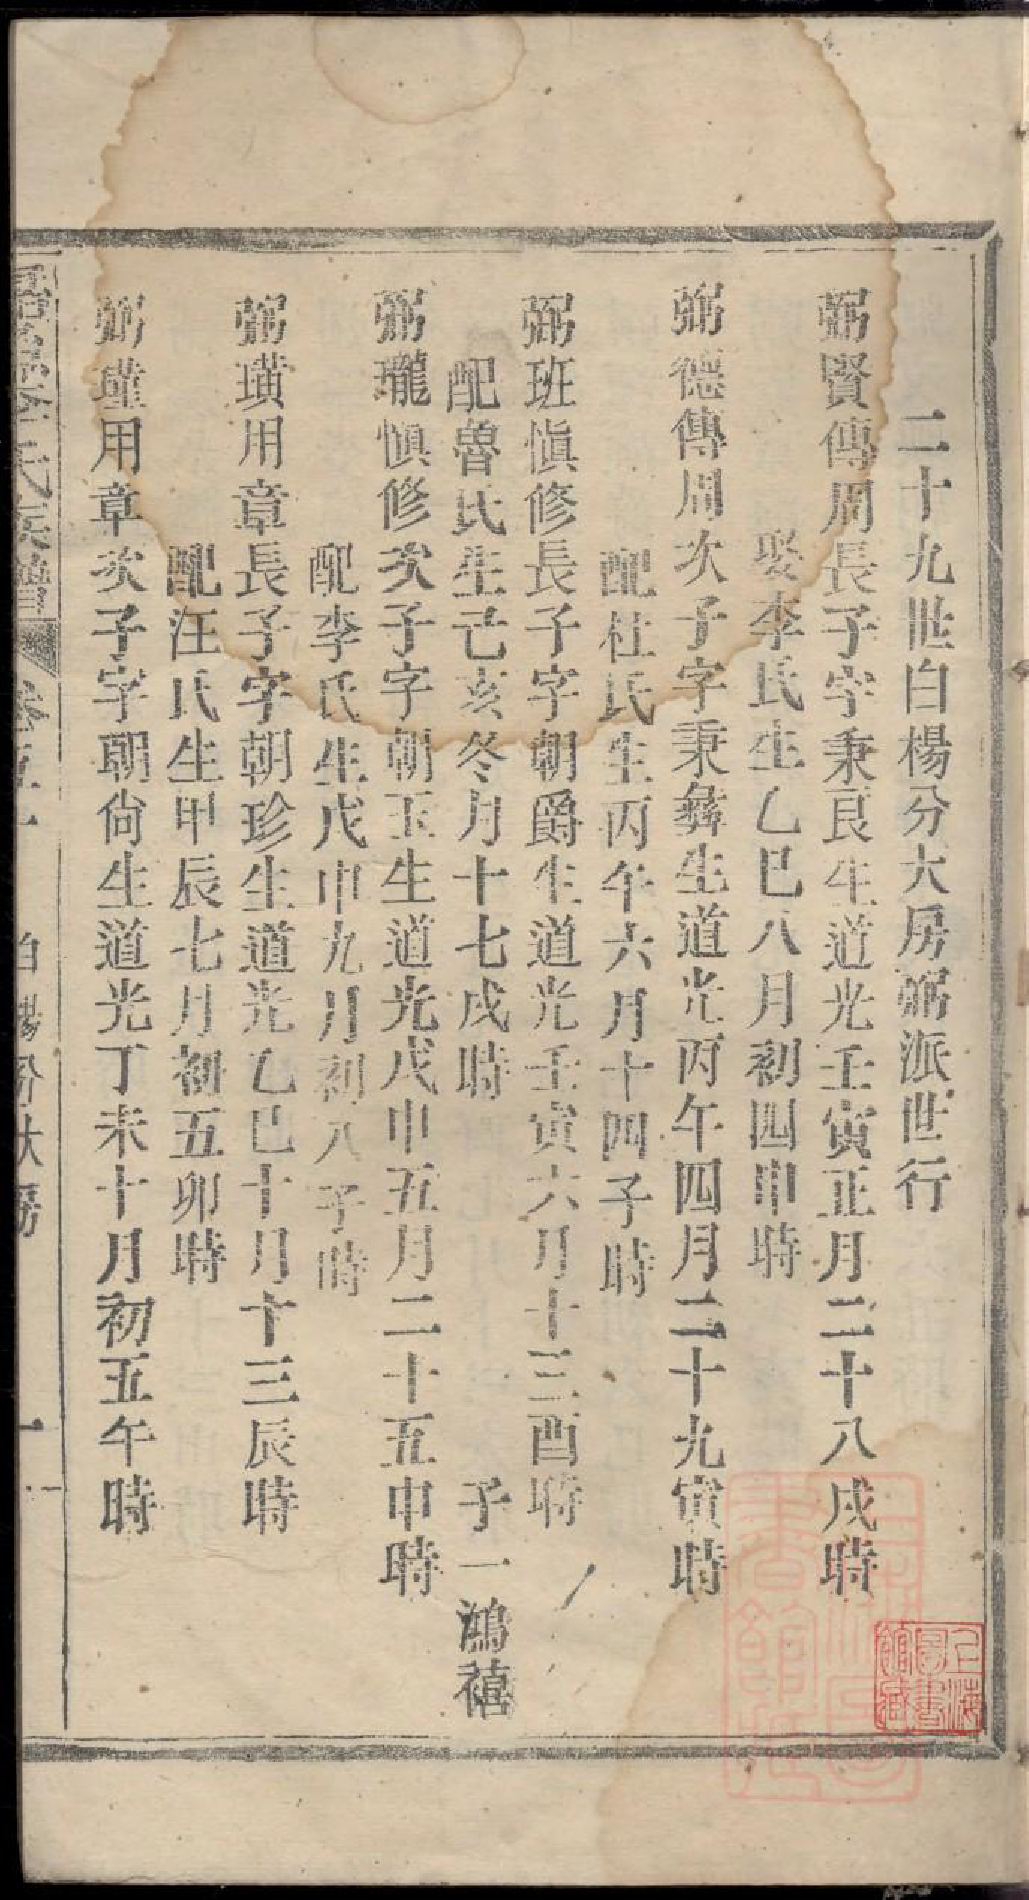 二十九世白楊分大房弼派世行
弼賢傳周長子字秉良生道光壬寅正月二十八戌時
娶李氏生乙巳八月初四申時
弼德傳周次子字秉彝生道光丙午四月二十九寅時
配杜氏生丙午六月十四子時
弼班愼修長子字朝爵生道光壬寅六月十三酉時
配魯氏生己亥冬月十七戌時 子一鴻禧
弼瓏愼修次子字朝玉生道光戊申五月二十五申時
配李氏生戊申九月初八子時
弼璜用章長子字朝珍生道光乙巳十月十三辰時
配汪氏生甲辰七月初五卯時
弼瑾用章次子字朝尙生道光丁未十月初五午時
氏族譜 卷五 白楊分大房 一
上海圖書館藏